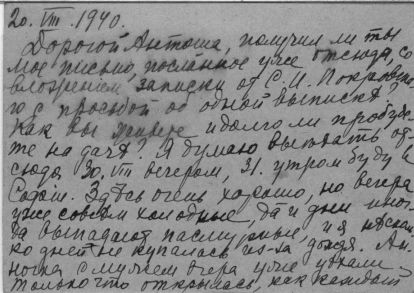 20. VIII. 1940.
Дорогой Антоша, получил ли ты
мое письмо, посланное уже отсюда, со
вложением записки от С.И. Покровско-
го с просьбой об одной выписке?
Как вы живете и долго ли пробуде-
те на даче? Я думаю выехать от-
сюда 30. VIII вечером, 31. утром буду в
Здесь очень хорошо, но вечера
уже совсем холодные, да и дни иног-
да выпадают пасмурные, и я несколь-
ко дней не купалась из-за дождя. Ан-
ночка с мужем вчера уже уехали
только что открылась, как каждый